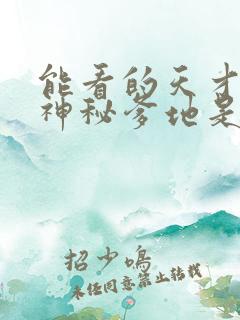 能看的天才
神秘爹地是
招少鸣
未经同意禁止转载